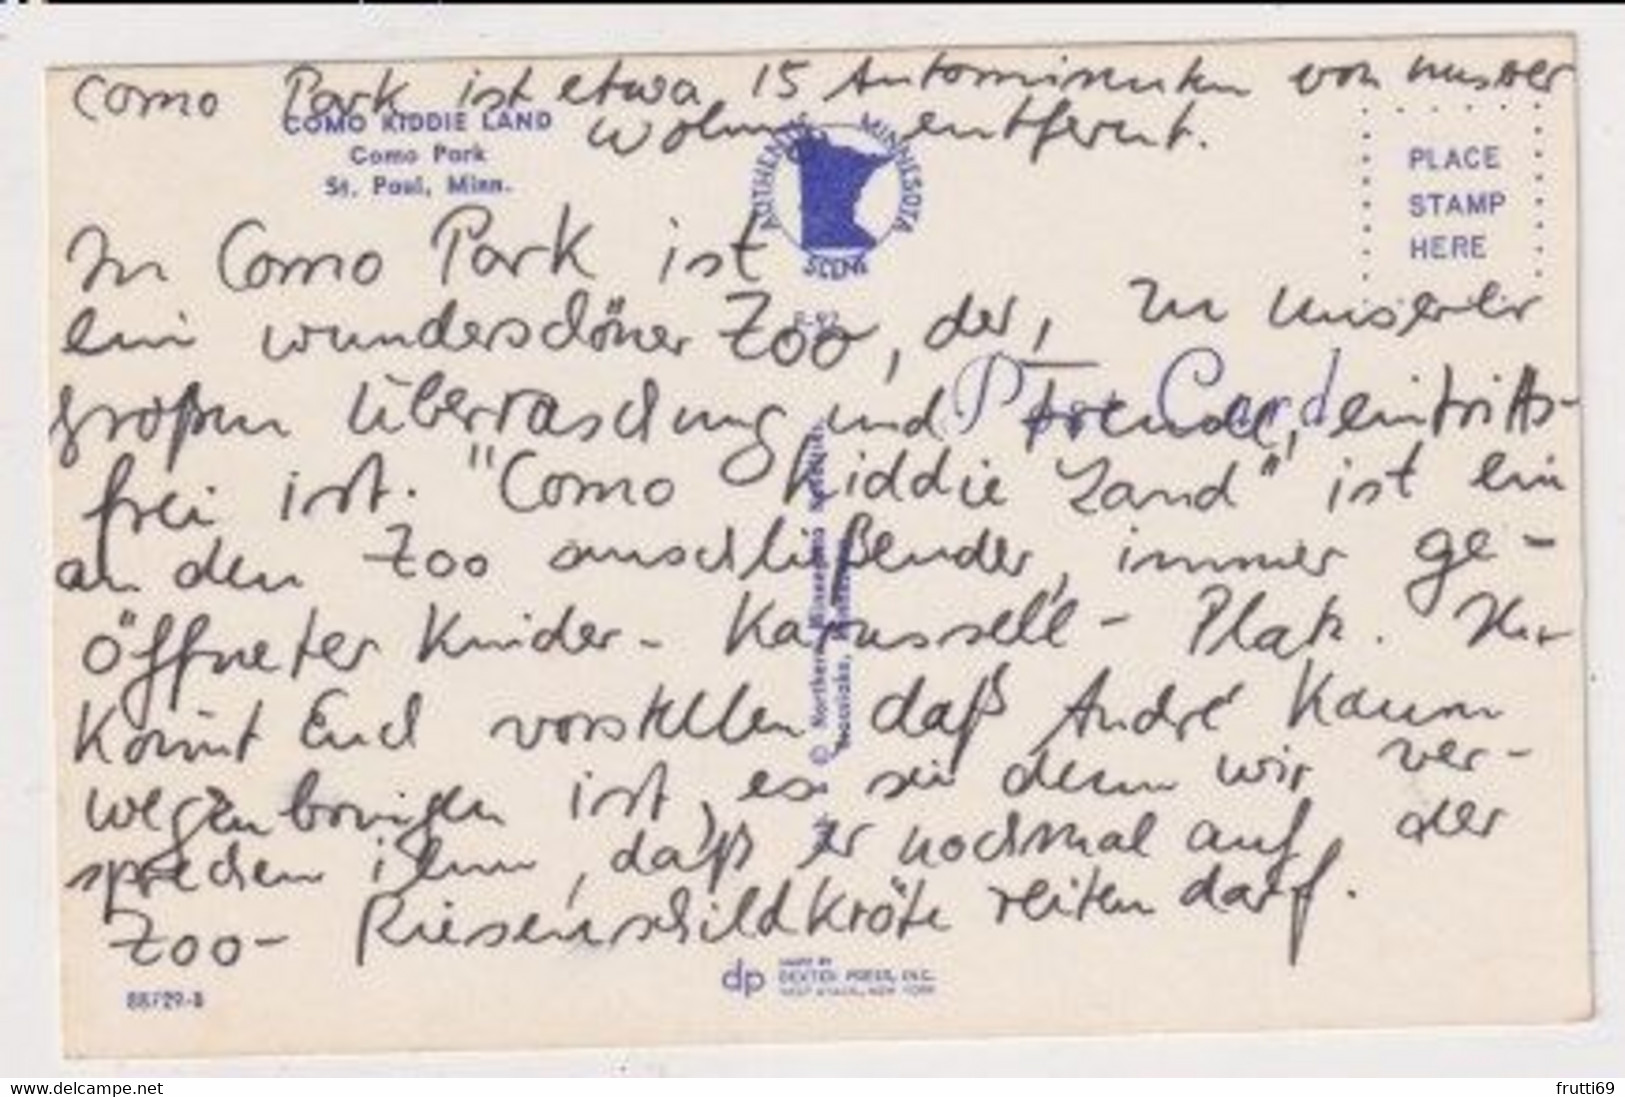 Como Park ist etwa 15 Autominuten von unserer
Wohnung entfernt.
COMO KIDDIE LAND
Como Park
St. Paul, Minn.
AUTHENTIC MINNESOTA
SCENE
PLACE
STAMP
HERE
In Como Park ist
ein wunderschöner Zoo, der, zu unserer
Post Card
großen Überraschung und Freude, eintritts-
frei ist. "Como Kiddie Land" ist ein
an den Zoo anschließender, immer ge-
öffneter Kinder-Karussell-Platz. Ihr
könnt Euch vorstellen daß André kaum
wegzubringen ist, es sei denn wir ver-
sprechen ihm, daß er nochmal auf der
Zoo-Riesenschildkröte reiten darf.
88729-B
dp MADE BY
DEXTER PRESS, INC.
WEST NYACK, NEW YORK
www.delcampe.net
frutti69